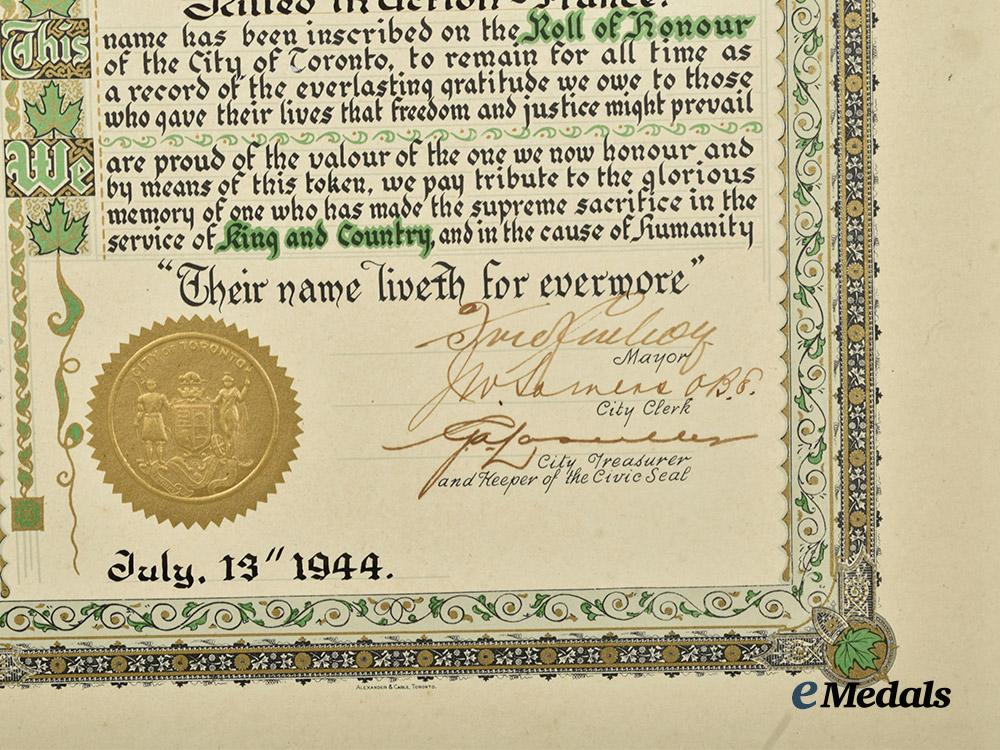 Killed in Action - France.
This
name has been inscribed on the Roll of Honour
of the City of Toronto, to remain for all time as
a record of the everlasting gratitude we owe to those
who gave their lives that freedom and justice might prevail
We
are proud of the valour of the one we now honour and
by means of this token, we pay tribute to the glorious
memory of one who has made the supreme sacrifice in the
service of King and Country, and in the cause of Humanity
"Their name liveth for evermore"
CITY OF TORONTO
Mayor
O.B.E.
City Clerk
City Treasurer
and Keeper of the Civic Seal
July, 13" 1944.
ALEXANDER & CABLE, TORONTO.
eMedals